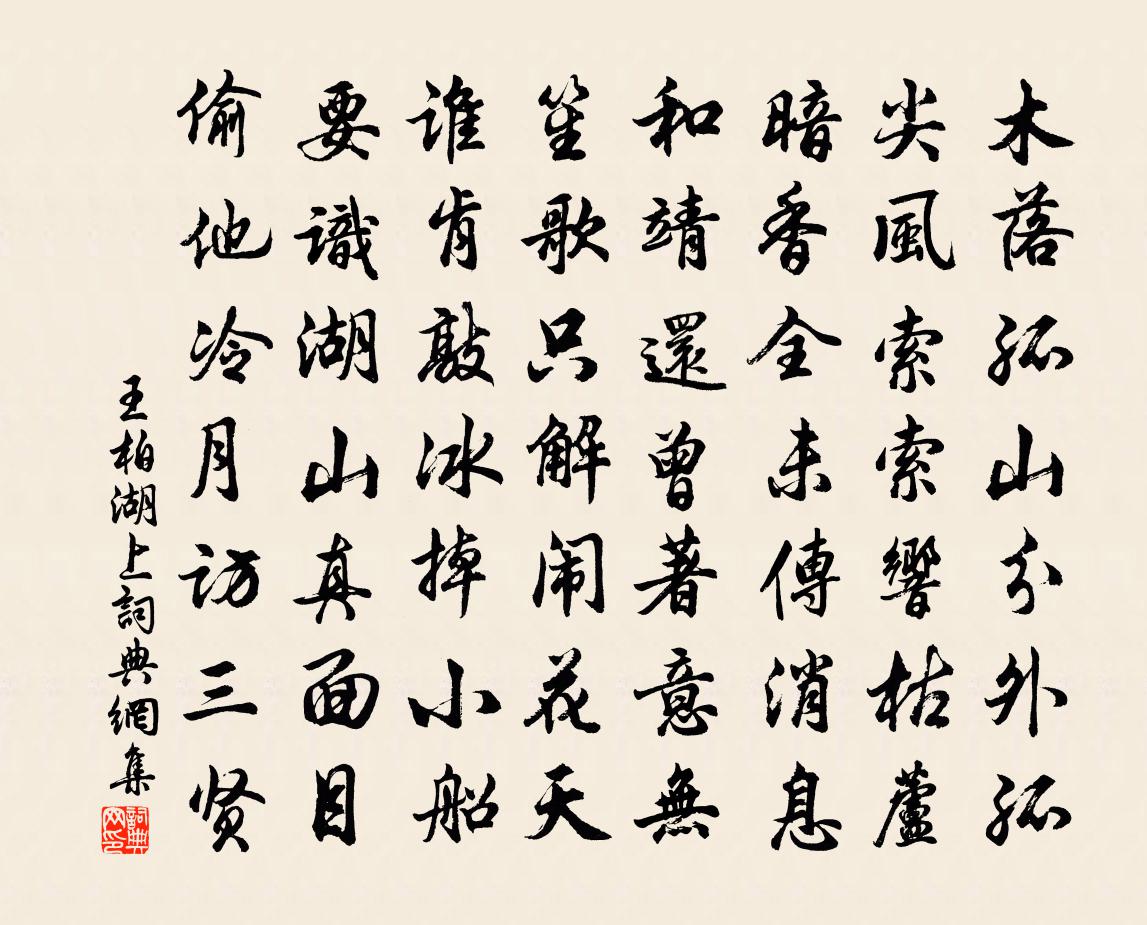 木落孤山分外孤
尖風索索響枯蘆
暗香全未傳消息
和靖還曾著意無
笙歌只解闹花天
谁肯敲冰掉小船
要識湖山真面目
偷他冷月访三贤
王柏湖上詞典網集
詞典網印